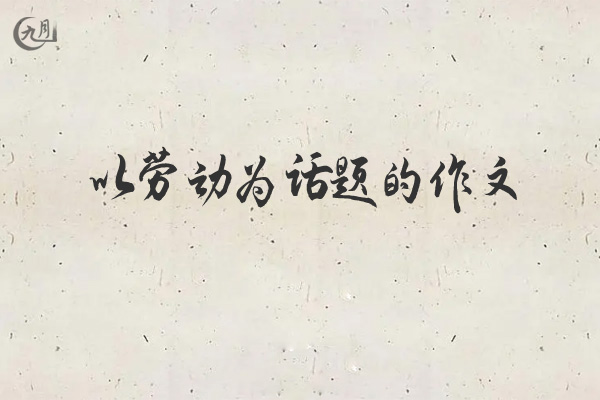 九月
以劳动为话题的作文